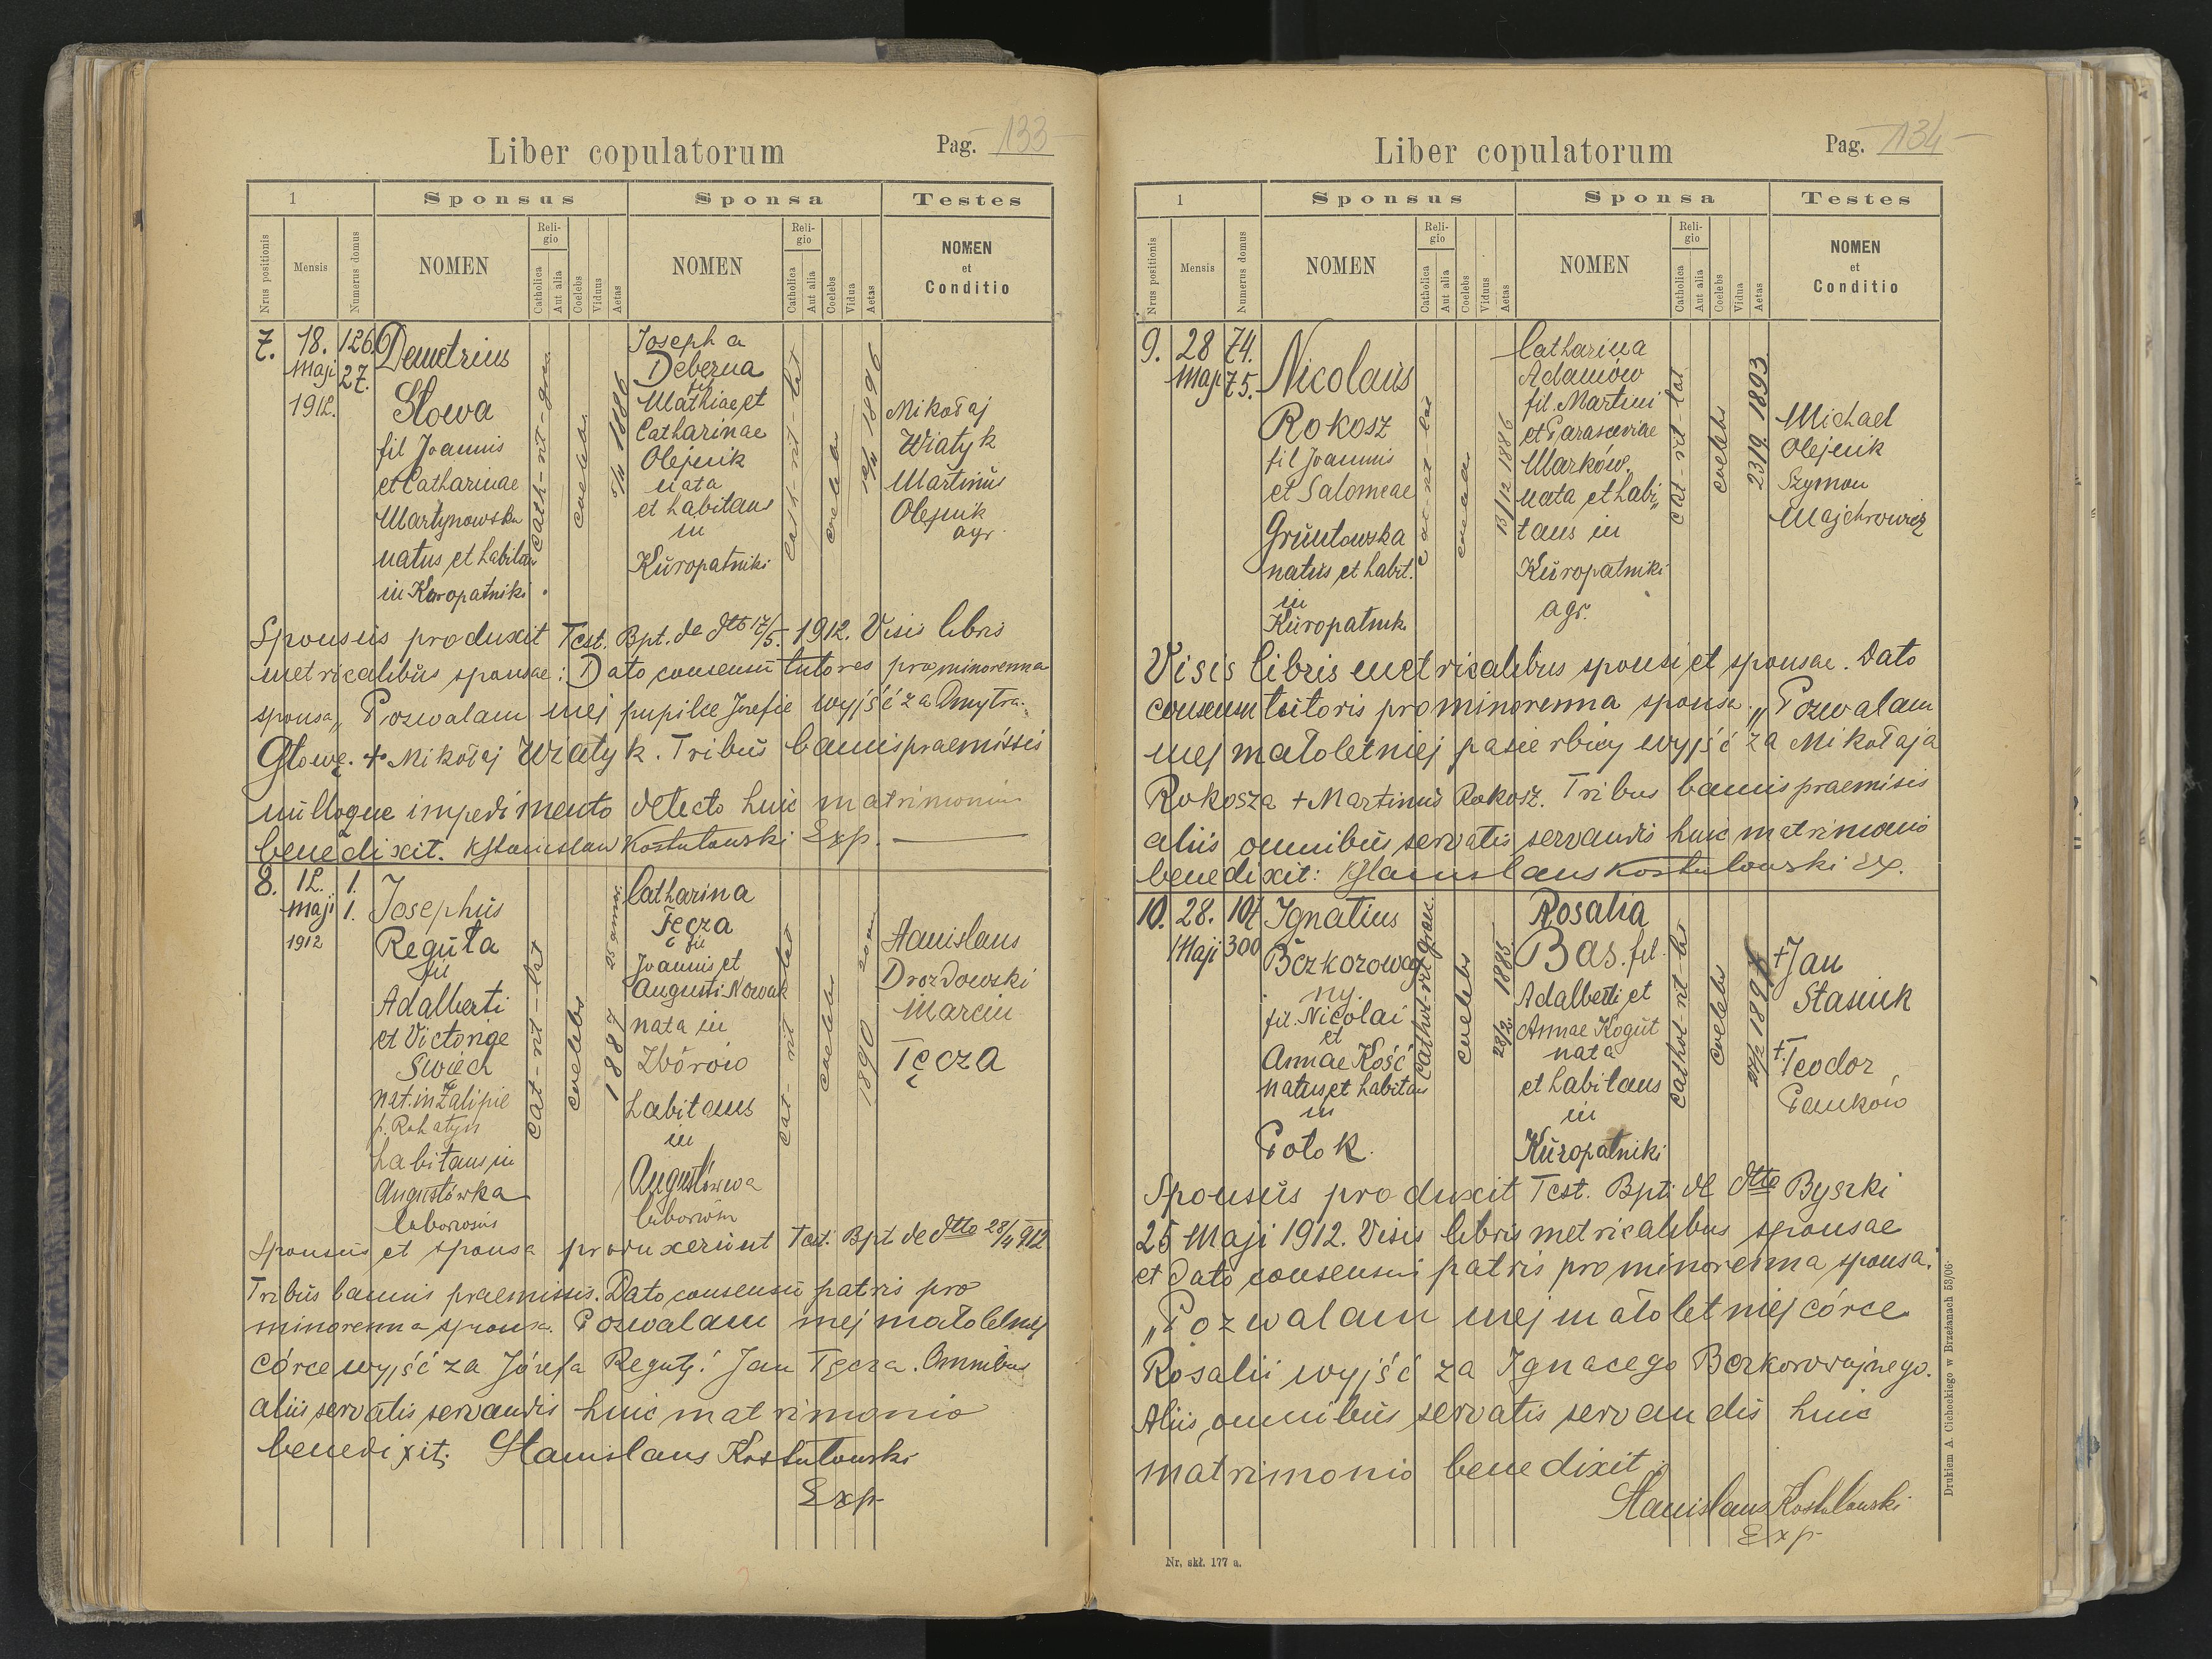 Liber copulatorum
Pag. 133
1
Sponsus
Sponsa
Testes
Nrus positionis
Mensis
Numerus domus
NOMEN
Religio
Catholica
Aut alia
Coelebs
Viduus
Aetas
NOMEN
Religio
Catholica
Aut alia
Coelebs
Vidua
Aetas
NOMEN
et
Conditio
7.
18.
Maji
1912.
126
27.
Demetrius
Słowa
fil Joannis
et Catharinae
Martynowska
natus et habitans
in Kuropatniki.
coelebs
5/11 1886
Josepha
Deberna
fil
Mathiae et
Catharinae
Olejnik
nata
et habitans
in
Kuropatniki
cath-rit-lat
coelebs
1896
Mikołaj
Wiatyk
Martinus
Olejnik
agr.
Sponsus produxit Test. Bpt. de dto 17/5. 1912. Visis libris
metricalibus sponsae: Dato consensu tutores pro minorenna
sponsa „Pozwalam mej pupilce Jozefie wyjść za Dmytra
Głowę. + Mikołaj Wiatyk. Tribus bannis praemissis
nulloque impedimento detecto huic matrimonio
benedixit. X Stanisław Kostulowski Exp.
8.
12.
Maji
1912
1.
1.
Josephus
Reguła
fil
Adalberti
et Victoriae
Swiech
nat. in Zalipie
p. Rohatyn
habitans in
Augustówka
laborosus
cat-rit-lat
coelebs
1887
Catharina
Tęcza
fil
Joannis et
Augusti Nowak
nata in
Zborów
habitans
in
Augustówka
cat-rit-lat
coelebs
1890
Stanislaus
Drozdowski
Marcin
Tęcza
Sponsus et sponsa produxerunt Test. Bpt. de dtto 28/4 912
Tribus bannis praemissis. Dato consensu patris pro
minorenna sponsa. Pozwalam mej małoletniej
córce wyjść za Józefa Regułę. Jan Tęcza. Omnibus
aliis servatis servandis huic matrimonio
benedixit; Stanislaus Kostulowski
Exp.
Liber copulatorum
Pag. 134
1
Sponsus
Sponsa
Testes
Nrus positionis
Mensis
Numerus domus
NOMEN
Religio
Catholica
Aut alia
Coelebs
Viduus
Aetas
NOMEN
Religio
Catholica
Aut alia
Coelebs
Vidua
Aetas
NOMEN
et
Conditio
9.
28
Maji
74.
75.
Nicolaus
Rokosz
fil Joannis
et Salomeae
Gruntowska
natus et habit.
in
Kuropatnik
13/12 1886
Catharina
Adamów
fil. Martini
et Parasceviae
Marków.
nata et habi„
tans in
Kuropatniki
agr.
cat-rit-lat
coelebs
23/9 1893
Michael
Olejnik
Szymon
Majchrowicz
Visis libris metricalibus sponsi et sponsae. Dato
consensu tutoris pro minorenna sponsa. „Pozwalam
mej małoletniej pasierbicy wyjść za Mikołaja
Rokosza + Martinus Rokosz. Tribus bannis praemisis
aliis omnibus servatis servandis huic matrimonio
benedixit: X Stanislaus Kostulowski Ex.
10.
28.
Maji
107
300
Ignatius
Bezkorowaj
ny.
fil. Nicolai
et
Annae Kość
natus et habitans
in
Potok.
coelebs
28/2 1885
Rosalia
Bas. fil.
Adalberti et
Annae Kogut
nata
et habitans
in
Kuropatniki
cathol-rit-lat
coelebs
+ Jan
Stasiuk
+ Teodor
Pańków
Sponsus produxit Test. Bpti de dtto Byszki
25 Maji 1912. Visis libris metricalibus sponsae
et dato consensui patris pro minorenna sponsa:
„Pozwalam mej małoletniej córce
Rosalii wyjść za Ignacego Bezkorowajnego.
Aliis omnibus servatis servandis huic
matrimonio benedixit.
Stanislaus Kostulowski
Exp
Nr. skł. 177 a.
Drukiem A. Cichockiego w Brzeżanach 53/06·